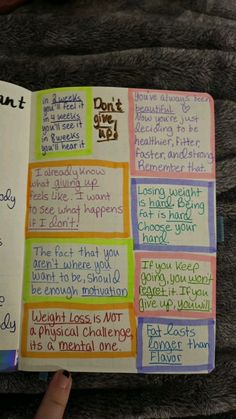 ant
ody
ody
in 2 weeks
you'll feel it
in 4 weeks
you'll see it
in 8 weeks
you'll hear it
Don't
give
up!
You've always been
beautiful ♡
Now you're just
deciding to be
healthier, fitter,
faster, and strong.
Remember that.
I already know
what giving up
feels like. I want
to see what happens
if I don't.
Losing weight
is hard. Being
fat is hard.
Choose your
hard.
The fact that you
aren't where you
want to be, should
be enough motivation
If you keep
going, you won't
regret it. If you
give up, you will.
Weight Loss is NOT
a physical challenge,
its a mental one.
Fat lasts
longer than
Flavor